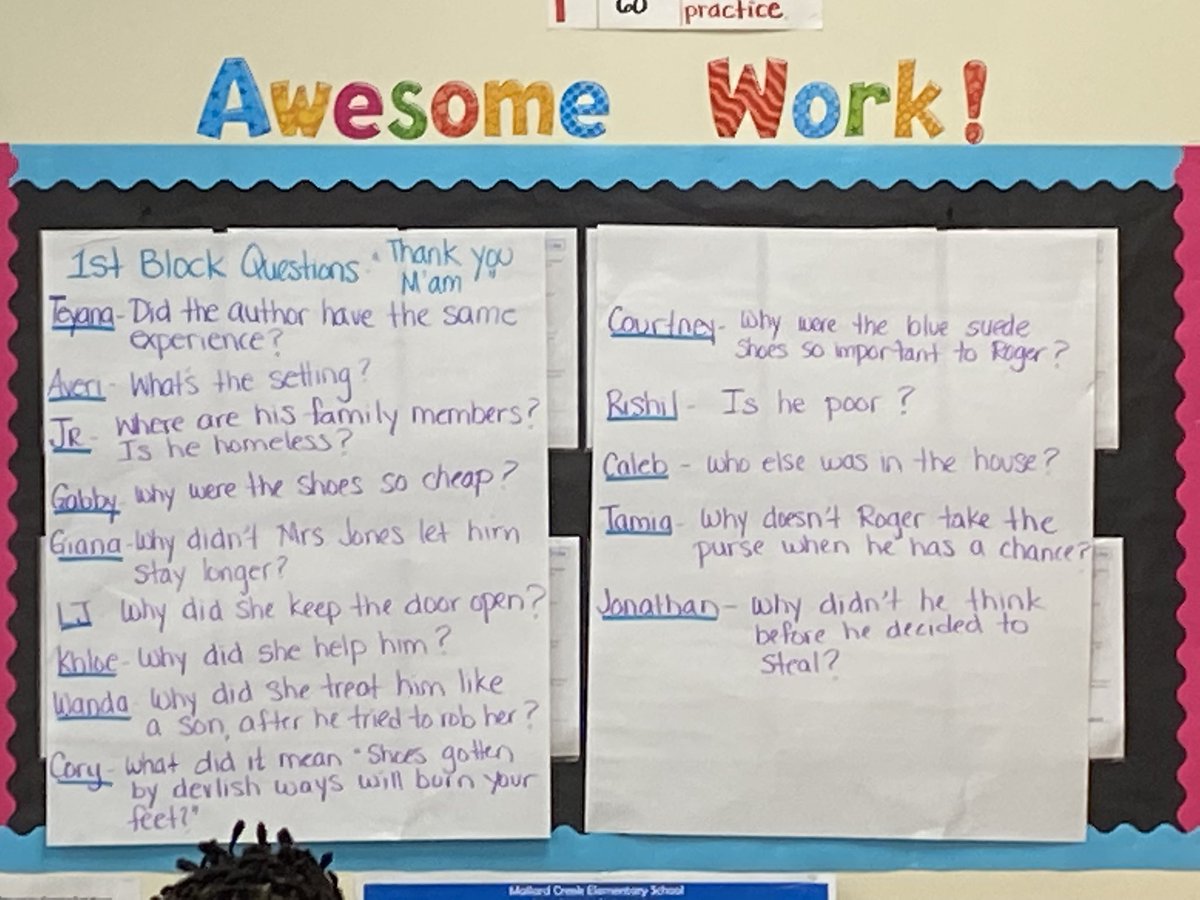 60
practice
Awesome Work!
1st Block Questions "Thank you
M'am
Teyana- Did the author have the same
experience?
Averi- What's the setting?
JR- Where are his family members?
Is he homeless?
Gabby- Why were the shoes so cheap?
Giana- Why didn't Mrs Jones let him
stay longer?
LJ Why did she keep the door open?
Khloe- Why did she help him?
Wanda Why did she treat him like
a son, after he tried to rob her?
Cory- what did it mean "Shoes gotten
by devlish ways will burn your
feet?"
Courtney- Why were the blue suede
shoes so important to Roger?
Rishil- Is he poor?
Caleb- who else was in the house?
Tamia- Why doesn't Roger take the
purse when he has a chance?
Jonathan- Why didn't he think
before he decided to
steal?
Mallard Creek Elementary School